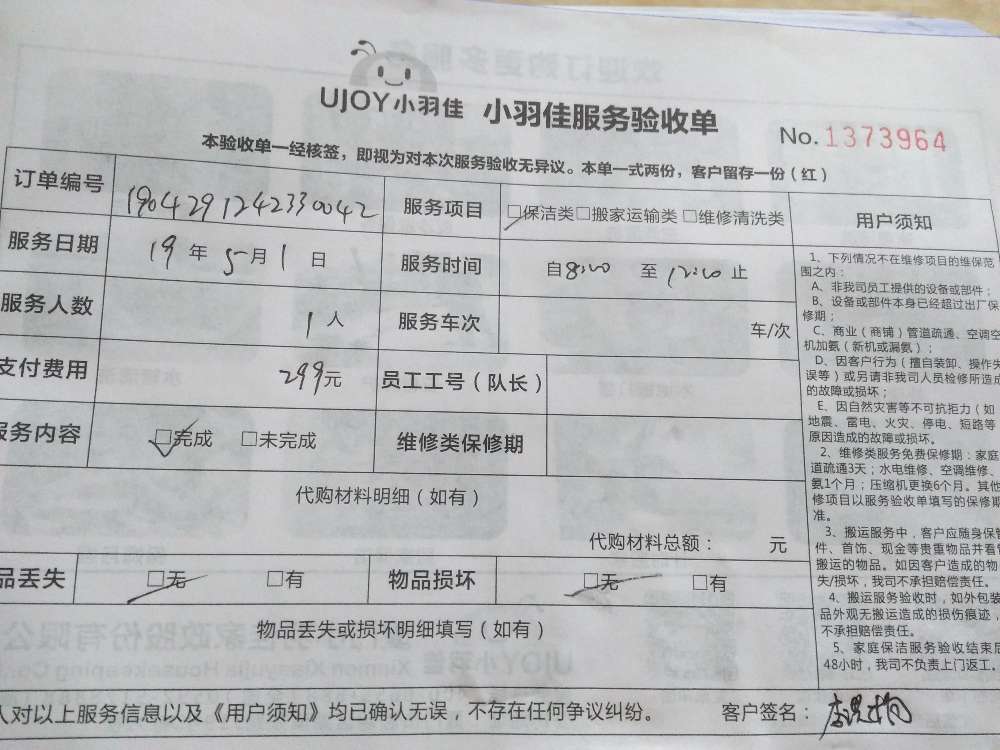 UJOY小羽佳 小羽佳服务验收单
No. 1373964
本验收单一经核签，即视为对本次服务验收无异议。本单一式两份，客户留存一份（红）
订单编号 1904291242330042 服务项目 □保洁类□搬家运输类 □维修清洗类
服务日期 19 年 5 月 1 日 服务时间 自8:00 至 12:00 止
服务人数 1 人 服务车次 车/次
支付费用 299元 员工工号（队长）
服务内容 □完成 □未完成 维修类保修期
代购材料明细（如有）
代购材料总额： 元
品丢失 □无 □有 物品损坏 □无 □有
物品丢失或损坏明细填写（如有）
人对以上服务信息以及《用户须知》均已确认无误，不存在任何争议纠纷。 客户签名：
用户须知
1、下列情况不在维修项目的维保范
围之内：
A、非我司员工提供的设备或部件；
B、设备或部件本身已经超过出厂保
修期；
C、商业（商铺）管道疏通、空调空
机加氨（新机或漏氨）；
D、因客户行为（擅自装卸、操作失
误等）或另请非我司人员检修所造成
的故障或损坏；
E、因自然灾害等不可抗拒力（如
地震、雷电、火灾、停电、短路等
原因造成的故障或损坏。
2、维修类服务免费保修期：家庭
道疏通3天；水电维修、空调维修、
氨1个月；压缩机更换6个月。其他
修项目以服务验收单填写的保修期
准。
3、搬运服务中，客户应随身保管
件、首饰、现金等贵重物品并看管
搬运的物品。如因客户造成的物
失/损坏，我司不承担赔偿责任。
4、搬运服务验收时，如外包装
品外观无搬运造成的损伤痕迹，
不承担赔偿责任。
5、家庭保洁服务验收结束后
48小时，我司不负责上门返工。